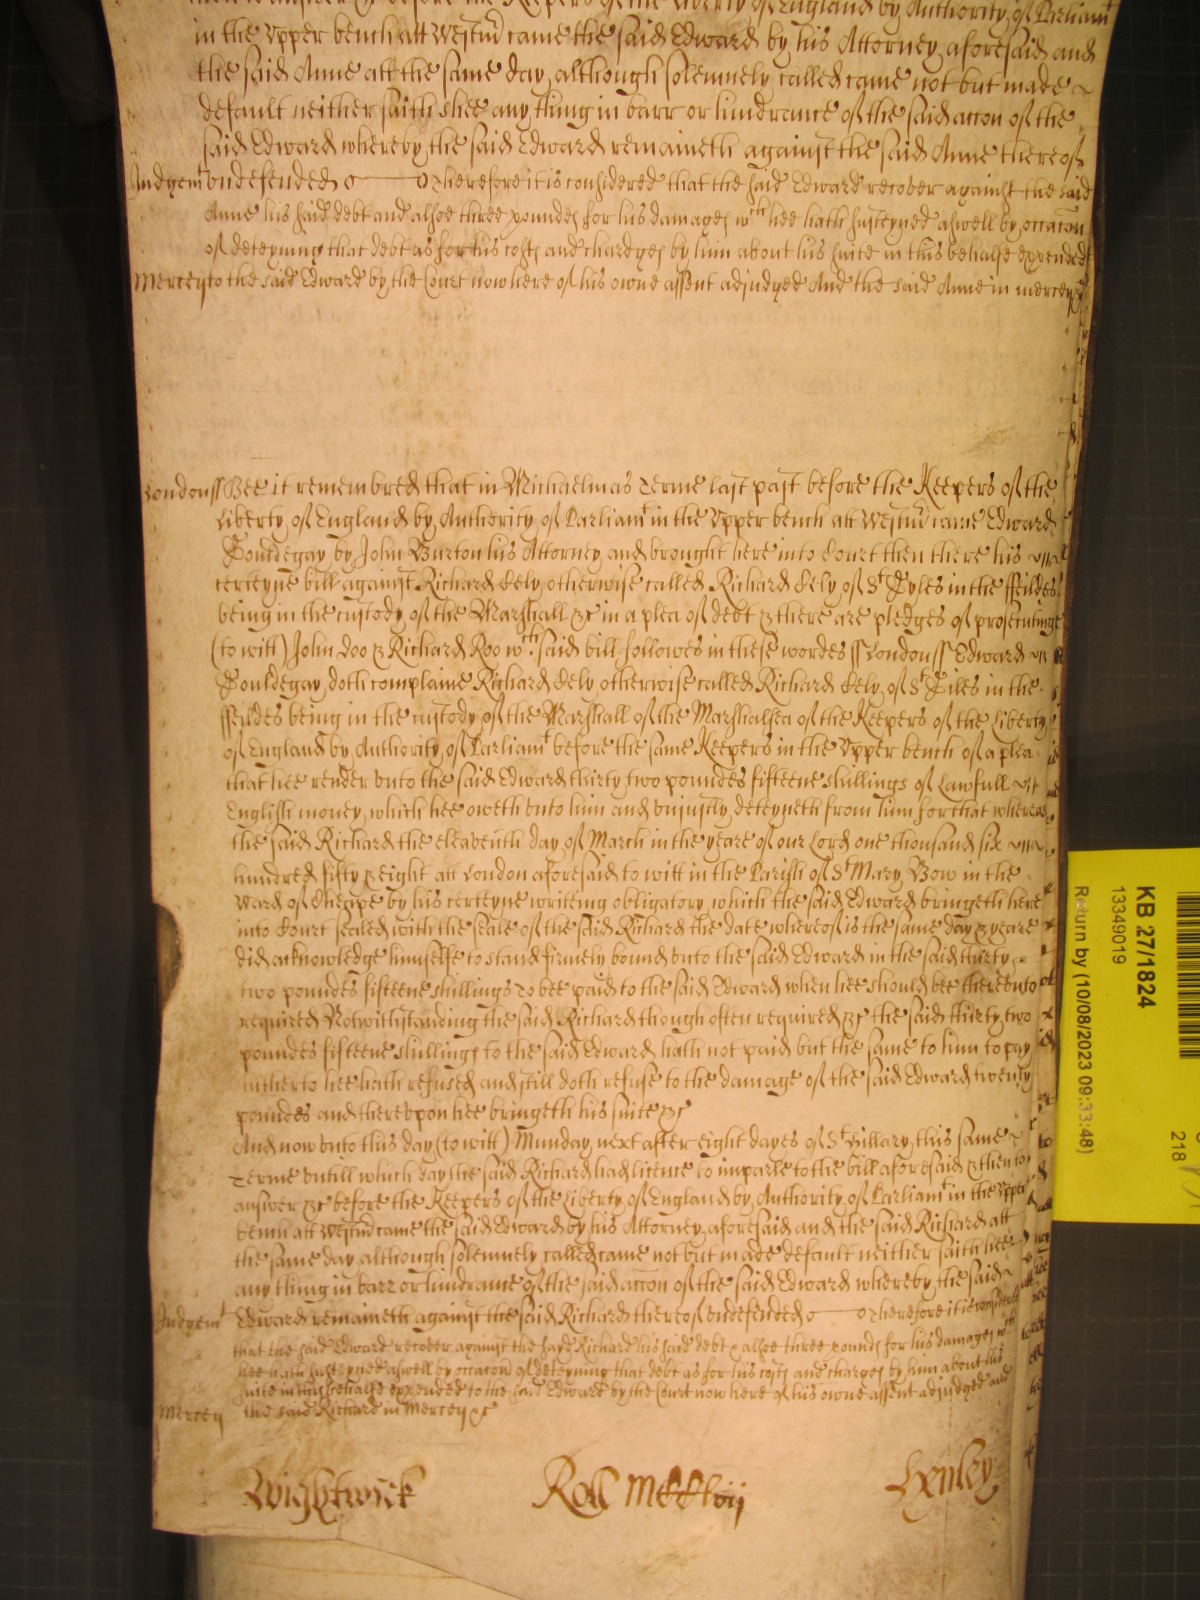 before the Keepers of the Liberty of England by Authority of Parliamt
in the Upper bench att Westmr came the said Edward by his Attorney aforesaid and
the said Anne att the same day although solemnely called came not but made
default neither saith shee any thing in barr or hindrance of the said accon of the
said Edward whereby the said Edward remaineth against the said Anne thereof
Judgemt undefended Therefore it is considered that the said Edward recover against the said
Anne his said debt and alsoe three poundes for his damages wch hee hath susteyned aswell by occacon
of deteyning that debt as for his costs and chardges by him about his suite in this behalfe expended
Mercey to the said Edward by the Court now here of his owne assent adjudged And the said Anne in mercey &c
London ss Bee it remembred that in Michaelmas Terme last past before the Keepers of the
Liberty of England by Authority of Parliamt in the Upper bench att Westmr came Edward
Gouldegay by John Burton his Attorney and brought here into Court then there his
certeyne bill against Richard Lely otherwise called Richard Lely of St Gyles in the ffeildes
being in the custody of the Marshall &c in a plea of debt & there are pledges of prosecutinge
(to witt) John Doo & Richard Roo wch said bill followes in these wordes ss London ss Edward
Gouldegay doth complaine Richard Lely otherwise called Richard Lely of St Giles in the
ffeildes being in the custody of the Marshall of the Marshalsea of the Keepers of the Liberty
of England by Authority of Parliamt before the same Keepers in the Upper bench of a plea
that hee render unto the said Edward thirty two poundes fifteene shillings of Lawfull
English money which hee oweth unto him and unjustly deteyneth from him for that whereas
the said Richard the eleaventh day of March in the yeare of our Lord one thousand six
hundred fifty & eight att London aforesaid to witt in the Parish of St Mary Bow in the
Ward of Cheape by his certeyne writeing obligatory which the said Edward bringeth here
into Court sealed with the seale of the said Richard the date whereof is the same day & yeare
did acknowledge himselfe to stand firmely bound unto the said Edward in the said thirty
two poundes fifteene shillings To bee paid to the said Edward when hee should bee thereunto
required Notwithstanding the said Richard though often required &c the said thirty two
poundes fifteene shillings to the said Edward hath not paid but the same to him to pay
hitherto hee hath refused and still doth refuse to the damage of the said Edward twenty
poundes and thereupon hee bringeth his suite &c
And now unto this day (to witt) Munday next after eight dayes of St Hillary this same
Terme untill which day the said Richard had licence to imparle to the bill aforesaid & then to
answer &c before the Keepers of the Liberty of England by Authority of Parliamt in the Upper
bench att Westmr came the said Edward by his Attorney aforesaid and the said Richard att
the same day although solemnely called came not but made default neither saith hee
any thing in barr or hindrance of the said accon of the said Edward whereby the said
Judgemt Edward remaineth against the said Richard thereof undefended Therefore it is considered
that the said Edward recover against the said Richard his said debt & alsoe three pounds for his damages wch
hee hath susteyned aswell by occacon of deteyning that debt as for his costs and charges by him about his
suite in this behalfe expended to the said Edward by the Court now here of his owne assent adjudged and
Mercey the said Richard in Mercey &c
Wightwick Roll MCClvij Henley
KB 27/1824
13349019
Return by (10/08/2023 09:33:48)
218